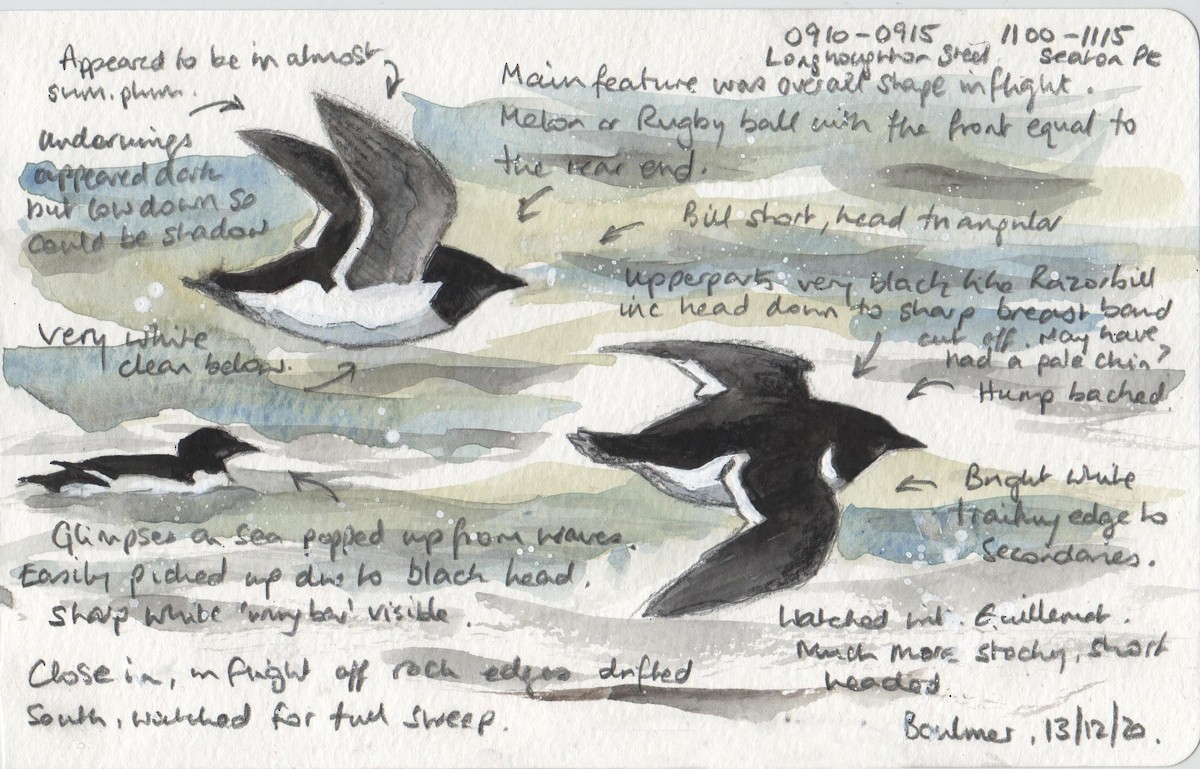 0910-0915 1100-1115
Longhoughton Steel. Seaton Pt
Appeared to be in almost
sum. plum.
Underwings
appeared dark
but low down so
could be shadow
Main feature was overall shape in flight.
Melon or Rugby ball with the front equal to
the rear end.
Bill short, head triangular
Upperparts very black like Razorbill
inc head down to sharp breast band
cut off. May have
had a pale chin?
Hump backed
Very white
clean below.
Bright white
trailing edge to
Secondaries.
Glimpses on sea popped up from waves.
Easily picked up due to black head.
Sharp white 'wing bar' visible.
Watched wit. Guillemot.
Much more stocky, short
headed
Close in, in flight off rock edges drifted
South, watched for full sweep.
Boulmer, 13/12/20.